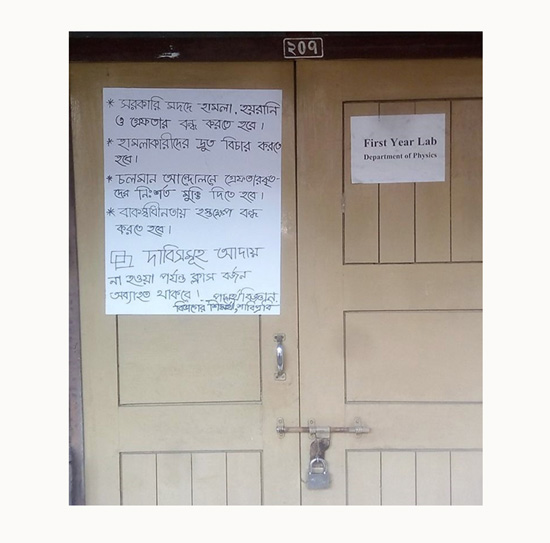 ২০৭
* সরকারি মদদে হামলা, হয়রানি
ও গ্রেফতার বন্ধ করতে হবে।
* হামলাকারীদের দ্রুত বিচার করতে
হবে।
* চলমান আন্দোলনে গ্রেফতারকৃত-
দের নিঃশর্ত মুক্তি দিতে হবে।
* বাকস্বাধীনতায় হস্তক্ষেপ বন্ধ
করতে হবে।
দাবিসমূহ আদায়
না হওয়া পর্যন্ত ক্লাস বর্জন
অব্যাহত থাকবে।
বিভাগের
First Year Lab
Department of Physics